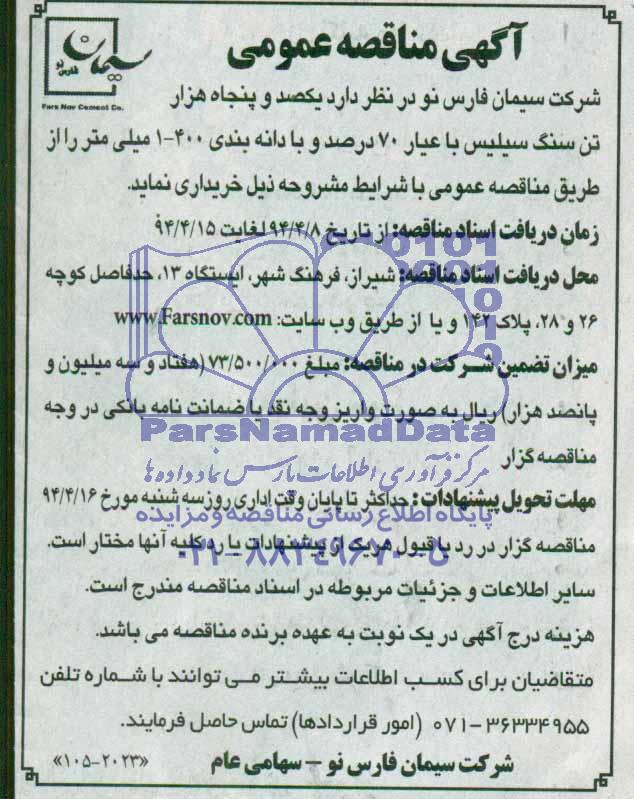 آگهی مناقصه عمومی
سیمان
فارس نو
Fars Nov Cement Co.
شرکت سیمان فارس نو در نظر دارد یکصد و پنجاه هزار
تن سنگ سیلیس با عیار ۷۰ درصد و با دانه بندی ۴۰۰-۱ میلی متر را از
طریق مناقصه عمومی با شرایط مشروحه ذیل خریداری نماید.
زمان دریافت اسناد مناقصه: از تاریخ ۹۴/۴/۸ لغایت ۹۴/۴/۱۵
محل دریافت اسناد مناقصه: شیراز، فرهنگ شهر، ایستگاه ۱۳، حدفاصل کوچه
۲۶ و ۲۸، پلاک ۱۴۲ و یا از طریق وب سایت: www.Farsnov.com
میزان تضمین شرکت در مناقصه: مبلغ ۷۳/۵۰۰/۰۰۰ (هفتاد و سه میلیون و
پانصد هزار) ریال به صورت واریز وجه نقد یا ضمانت نامه بانکی در وجه
ParsNamadData
مناقصه گزار
مرکز فرآوری اطلاعات پارس نماد داده ها
مهلت تحویل پیشنهادات: حداکثر تا پایان وقت اداری روز سه شنبه مورخ ۹۴/۴/۱۶
پایگاه اطلاع رسانی مناقصه و مزایده
مناقصه گزار در رد یا قبول هریک از پیشنهادات یا رد کلیه آنها مختار است.
۰۲۱-۸۸۳۴۹۶۷۰-۵
سایر اطلاعات و جزئیات مربوطه در اسناد مناقصه مندرج است.
هزینه درج آگهی در یک نوبت به عهده برنده مناقصه می باشد.
متقاضیان برای کسب اطلاعات بیشتر می توانند با شماره تلفن
۰۷۱-۳۶۳۳۴۹۵۵ (امور قراردادها) تماس حاصل فرمایند.
شرکت سیمان فارس نو – سهامی عام
«۱۰۵-۲۰۲۳»